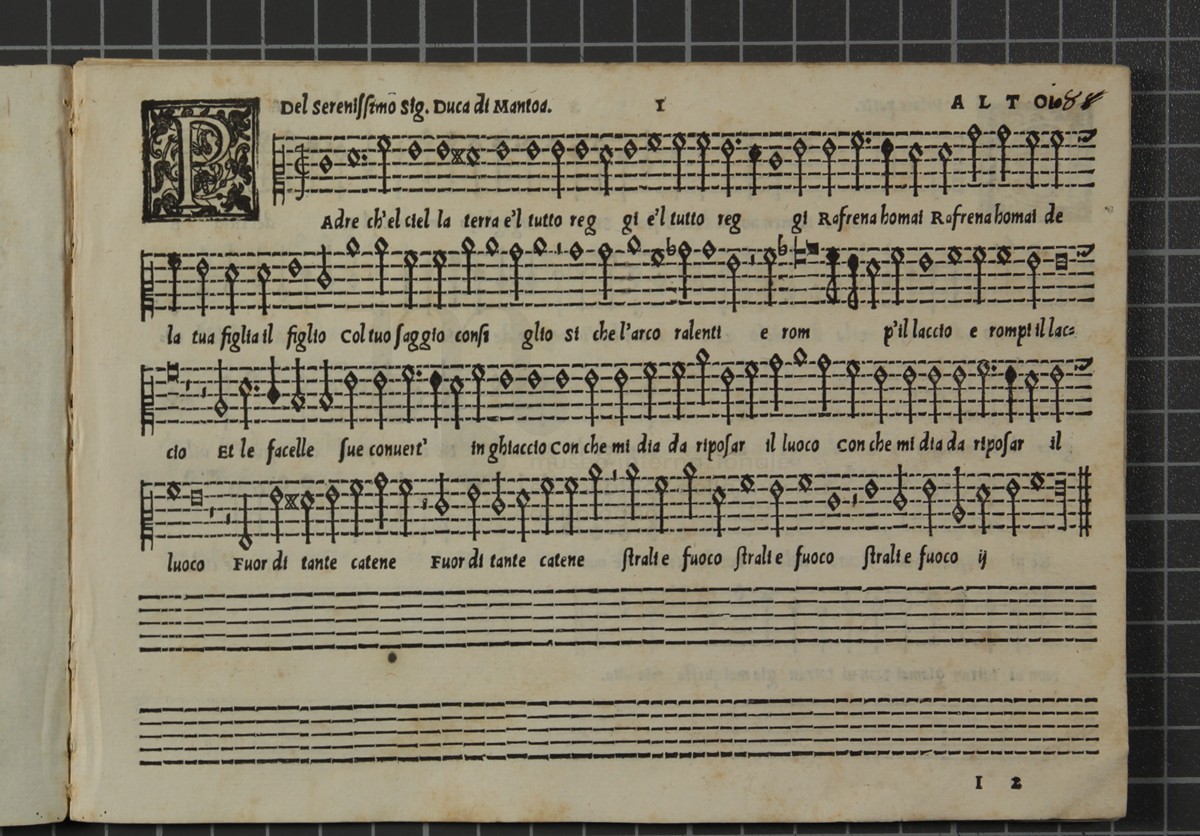 Del Serenissimō Sig. Duca di Mantoa. I ALTO 88
PAdre ch'el ciel la terra e'l tutto reg gi e'l tutto reg gi Rafrena homai Rafrena homai de
la tua figlia il figlio Col tuo saggio consi glio si che l'arco ralenti e rom p'il laccio e rompi il lac=
cio Et le facelle sue conuert' in ghiaccio Con che mi dia da riposar il luoco Con che mi dia da riposar il
luoco Fuor di tante catene Fuor di tante catene strali e fuoco strali e fuoco strali e fuoco ij
I 2